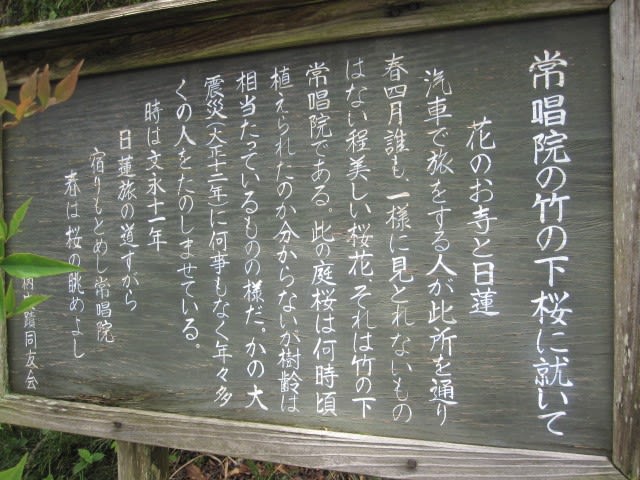 常唱院の竹の下桜に就いて
花のお寺と日蓮
汽車で旅をする人が此所を通り
春四月誰も、一様に見とれないもの
はない程美しい桜花、それは竹の下
常唱院である。此の庭桜は何時頃
植えられたのか分からないが樹齢は
相当たっているものの様だ。かの大
震災(大正十二年)に何事もなく年々多
くの人をたのしませている。
時は文永十一年
日蓮旅の道すがら
宿りもとめし常唱院
春は桜の眺めよし
蹟同友会